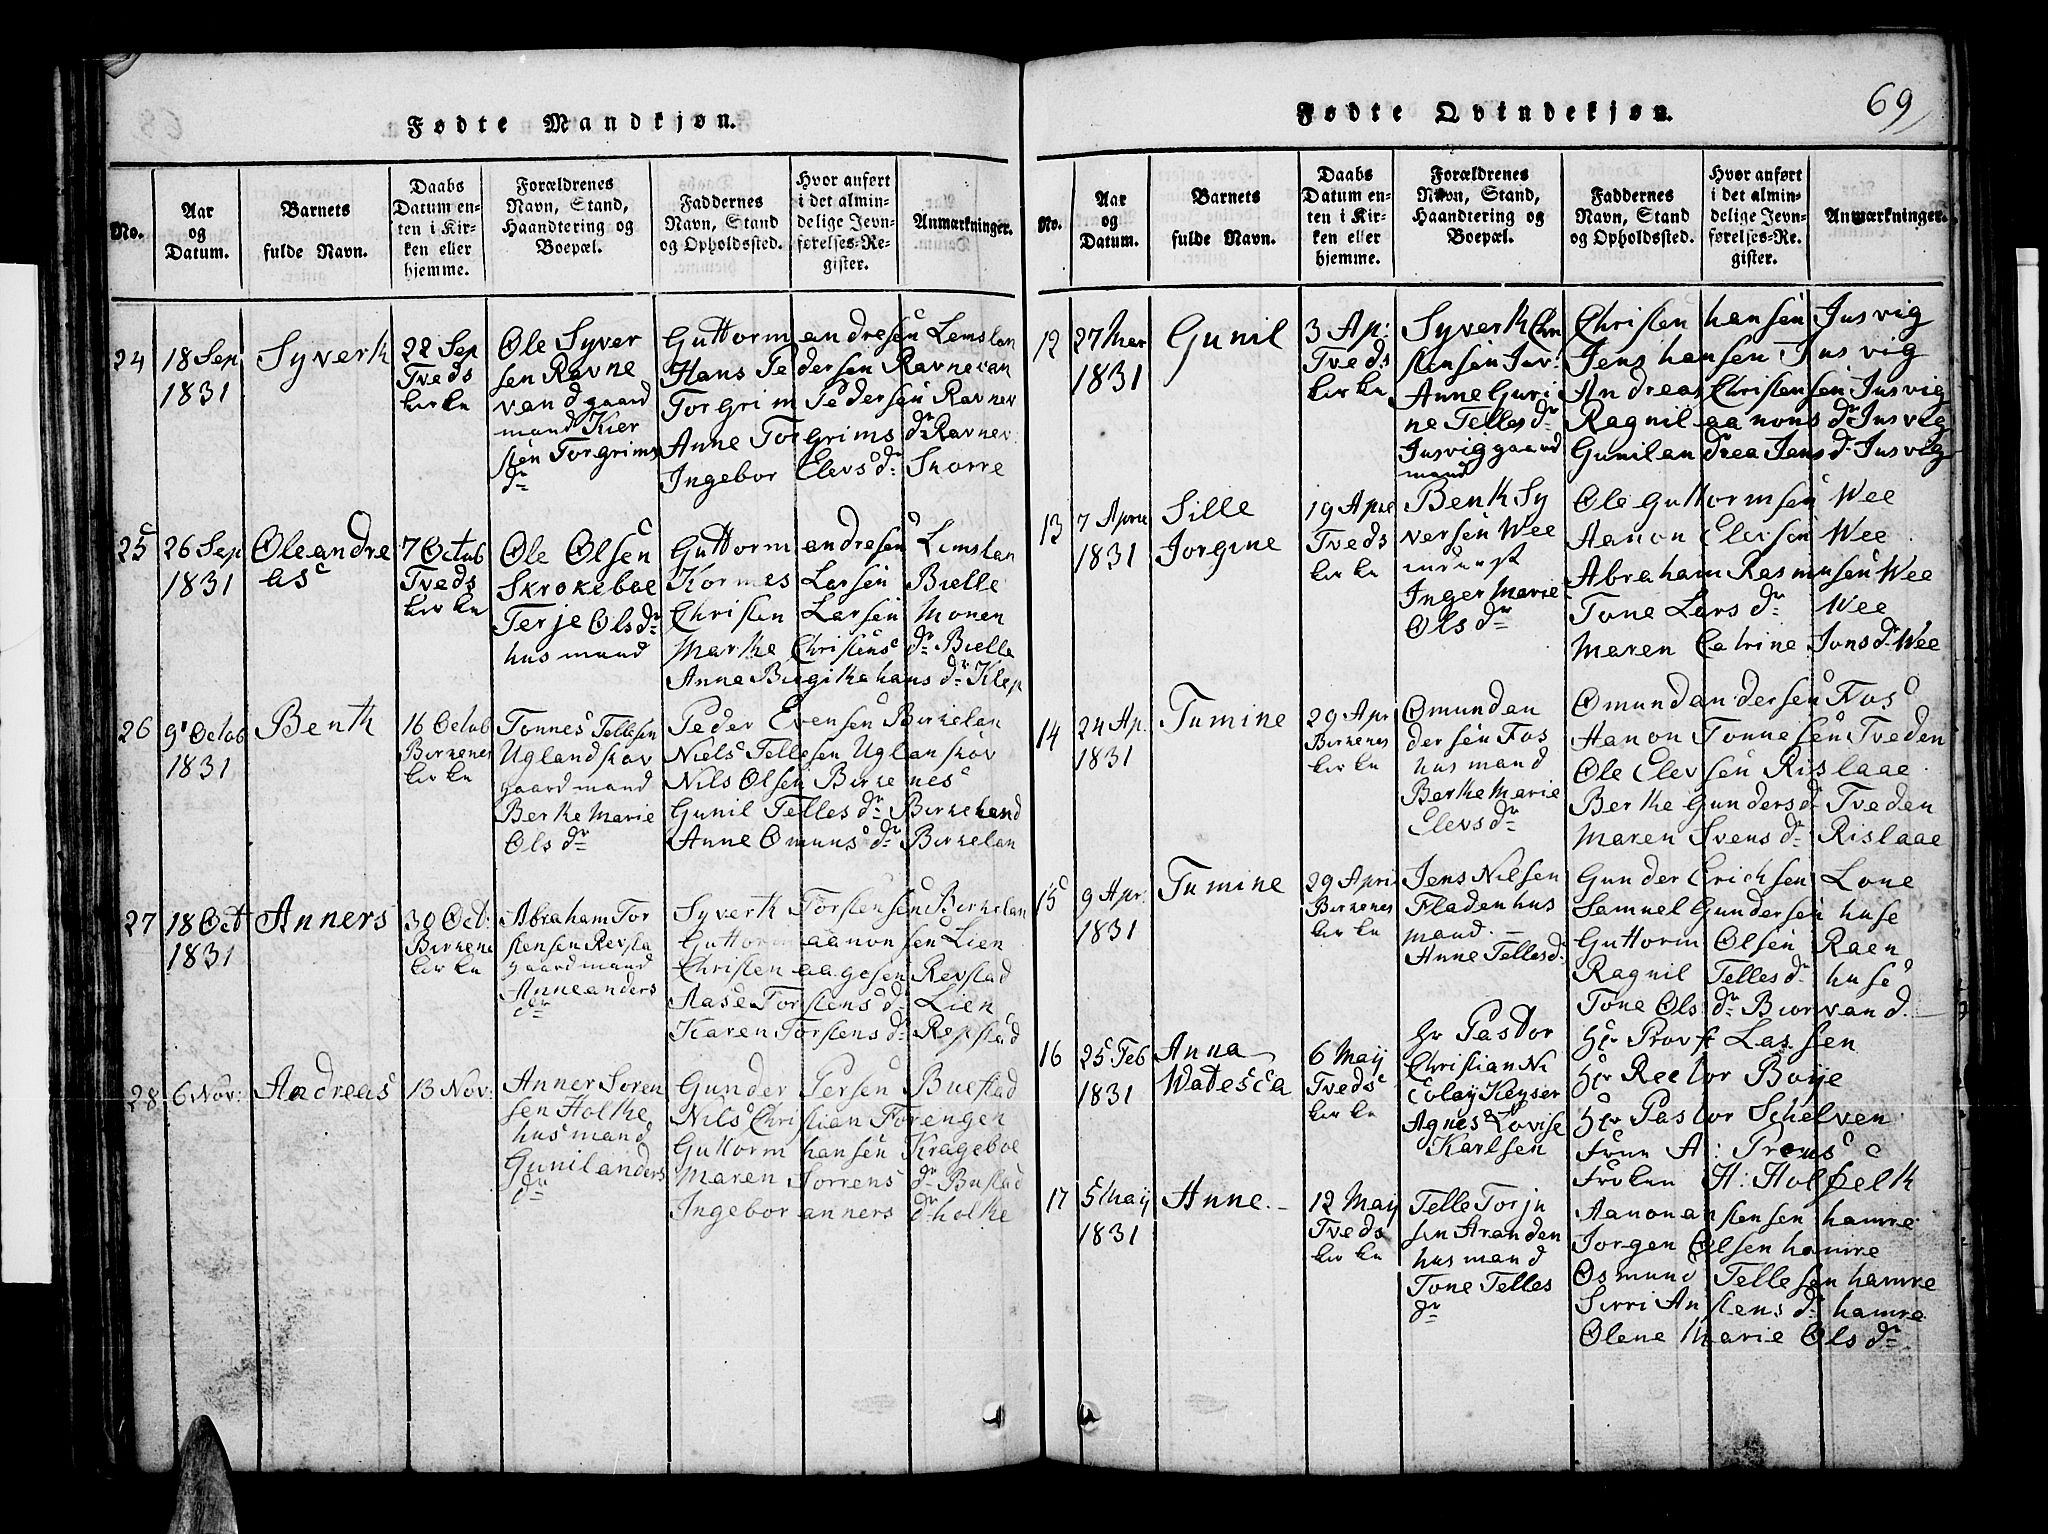 Fødte Mandkjøn.
No.
Aar
og
Datum.
Barnets
fulde Navn.
Daabs
Datum en-
ten i Kir-
ken eller
hjemme.
Forældrenes
Navn, Stand,
Haandtering og
Boepæl.
Faddernes
Navn, Stand
og Opholdssted.
Hvor anført
i det almin-
delige Jevn-
førelses-Re-
gister.
Anmærkninger.
24
18 Sep
1831
Syverk
22 Sep
Tveds
kirke
Ole Syver
sen Ravne
vand gaard
mand Kier
sten Torgrims
dr
Guttorm andresen Lemslan
Hans Pedersen Ravnevan
Torgrim Pedersen Ravnev
Anne Torgrims dr Ravnev
Ingebor Elevs dr Snorre
25
26 Sep
1831
Oleandre
as
7 Octob
Tveds
kirke
Ole Olsen
Skrokeboe
Terje Ols dr
husmand
Guttorm andresen Lemslan
Kormes Larsen Bielle
Christen Larsen Monen
Marthe Christens dr Bielle
Anne Birgithe hans dr Klep
26
9 Octob
1831
Benth
16 Octob
Birkenes
kirke
Tonnes Tellesen
Uglandskov
gaardmand
Berthe Marie
Ols dr
Peder Evensen Birkelan
Niels Tellesen Uglanskov
Nils Olsen Birkenes
Gunil Telles dr Birkeland
Anne Omuns dr Birkelan
27
18 Oct
1831
Anners
30 Oct:
Birkene
kirke
Abraham Tor
stensen Revsta
gaardmand
Anne anders
dr
Syverk Torstensen Birkelan
Guttorm aanonsen Lien
Christen aagesen Revstad
Aase Torstens dr Lien
Karen Torstens dr Repstad
28
6 Nov:
Andreas
13 Nov:
Anner Soren
sen Holthe
husmand
Gunil anders
dr
Gunder Persen Buestad
Nils Christian Forengen
Guttorm hansen Krageboe
Maren Sorrens dr Bustad
Ingebor anners dr holthe
Fødte Qvindekjøn.
69
No.
Aar
og
Datum.
Barnets
fulde Navn.
Daabs
Datum en-
ten i Kir-
ken eller
hjemme.
Forældrenes
Navn, Stand,
Haandtering og
Boepæl.
Faddernes
Navn, Stand
og Opholdssted.
Hvor anført
i det almin-
delige Jevn-
førelses-Re-
gister.
Anmærkninger.
12
27 Mar
1831
Gunil
3 Ap:
Tveds
kirke
Syverk Chri
stensen Jsv
Anne Guri
ne Telles dr
Jusvig gaard
mand
Christen hansen Jusvig
Jens hansen Jusvig
Andreas Christensen Jusvig
Ragnil aanons dr Jusvig
Gunil andrea Jens dr Jusvig
13
7 April
1831
Sille
Jorgine
19 Apre
Tveds
kirke
Benth Sy
versen Wee
Inger Marie
Ols dr
Ole Guttormsen Wee
Aanon Elevsen Wee
Abraham Rasmusen Wee
Tone Lars dr Wee
Maren Catrine Jons dr Wee
14
24 Ap.
1831
Tumine
29 Apr
Birkenes
kirke
Omund an
dersen Fos
husmand
Berthe Marie
Elevs dr
Omund andersen Fos
Aanon Tonnesen Tveden
Ole Elevsen Rislaae
Berthe Gunders dr Tveden
Maren Svens dr Rislaae
15
9 Apr.
1831
Tumine
29 Apri
Birkenes
kirke
Jens Nilsen
Fladen hus
mand. –
Anne Telles d:
Gunder Erichsen Lone
Samuel Gundersen huse
Guttorm Olsen Raen
Ragnil Telles dr huse
Tone Ols dr Biorvand.
16
25 Feb
1831
Anna
Watesca
6 May
Tveds
kirke
Hr Pastor
Christian Ni
colay Keyser
Agnes Lovise
Karlsen
Hr Provst Lassen
Hr Rector Boye
Hr Pastor Schelven
Frue A: Prems
Frøken H: Holfeldt
17
5 May
1831
Anne. –
12 May
Tveds
kirke
Telle Torju
sen Stranden
husmand
Tone Telles
dr
Aanon anstensen hamre
Jorgen Olsen hamre
Osmund Tellesen hamre
Sirri Anstens dr hamre
Olene Marie Ols dr